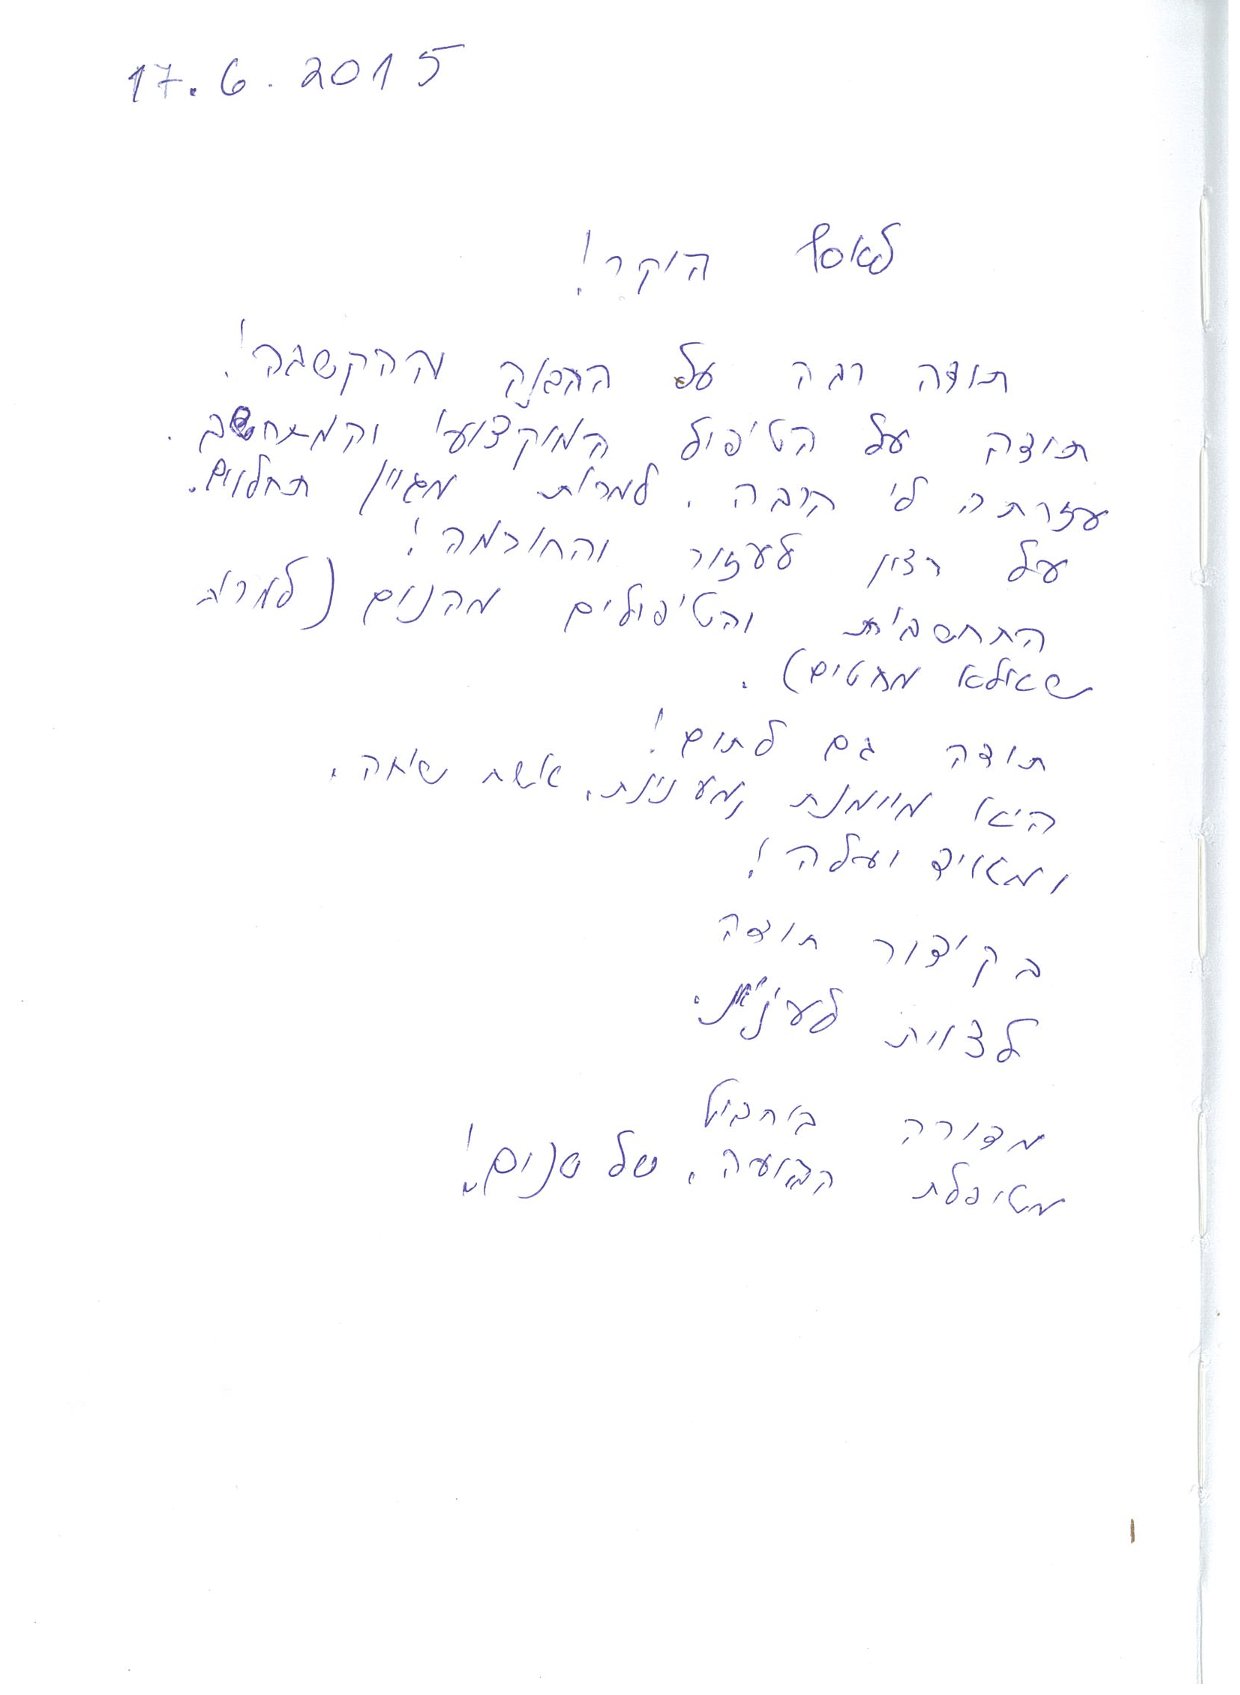 17.6.2015
לאסף היקר!
תודה רבה על ההבנה וההקשבה!
תודה על הטיפול המוקצועי והמתחשב.
עזרתה לי הרבה. למרות מגוון תחלוים.
על רצון לעזור והחוכמה!
התחשבות והטיפולים מהנים (למרות
שאולא מחטים).
תודה גם לתום!
היא מיומנת, אשת שיחה.
ומאויד ועלה!
בקיצור תודה
לצוית
מדורה
מטופלת הקבועה, של שנים!